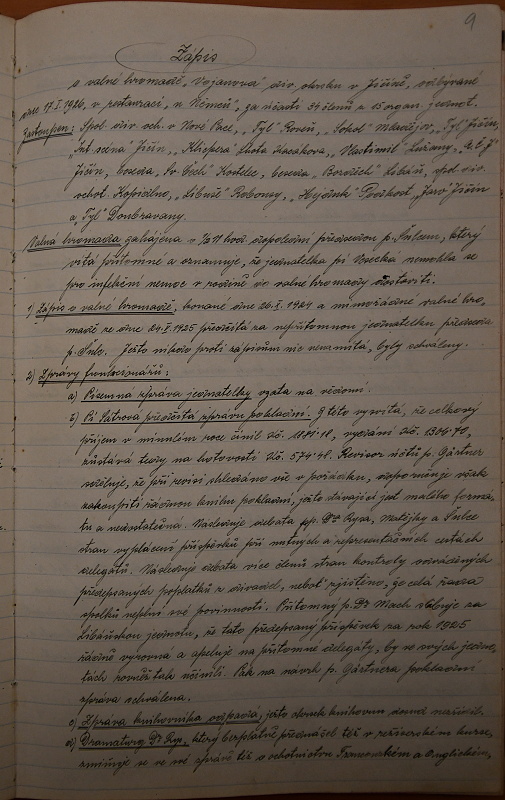 9
Zápis
o valné hromadě „Vojanova" div. okrsku v Jičíně, odbývané
dne 17.I.1926, v restauraci „u Němců", za účasti 34 členů a 15 organ. jednot.
Zastoupen: Spol. div. och. v Nové Pace, „Tyl" Roveň, „Sokol" Mladějov, „Tyl" Jičín,
„Int. scena" Jičín, „Klicpera" Lhota
Jičín, beseda „Sv. Čech" Kostelec, beseda Libáň, spol. div.
ochot. Kopidlno, „Libuše" Robousy, „Hejčink" Podhost, „Jaro" Jičín
a „Tyl" Doubravany.
Valná hromada zahájena o ½11 hod. dopolední předsedou p. Šulcem, který
vítá přítomné a oznamuje, že jednatelka pí Vosecká nemohla se
pro infekční nemoc v rodině do valné hromady dostaviti.
1) Zápis o valné hromadě, konané dne 26.X.1924 a mimořádné valné hro-
madě ze dne 24.V.1925 přečítá za nepřítomnou jednatelku předseda
p. Šulc. Ježto nikdo proti zápisům nic nenamítá, byly schváleny.
2) Zprávy funkcionářů:
a) Písemná zpráva jednatelky vzata na vědomí.
b) Pí Šátrová přečítá zprávu pokladní. Z této vysvítá, že celkový
příjem v minulém roce činil Kč. 1871·18, vydání Kč. 1304·70,
zůstává tedy na hotovosti Kč. 574·48. Revisor účtů p. Gärtner
sděluje, že při revisi shledáno vše v pořádku, doporučuje však
zakoupiti řádnou knihu pokladní, ježto dávající jest malého formá-
tu a nedostatečná. Následuje debata pp. Dr Rysa, Matějky a Šulce
stran vyplácení příspěvků při nutných a representačních cestách
delegátů. Následuje debata více členů stran kontroly odváděných
předepsaných poplatků z divadel, neboť zjištěno, že celá řada
spolků neplní své povinnosti. Přítomný p. Dr Mach slibuje za
Libáňskou jednotu, že tato předepsaný příspěvek za rok 1925
řádně vyrovná a apeluje na přítomné delegáty, by ve svých jedno-
tách rovněž tak učinili. Pak na návrh p. Gärtnera pokladní
zpráva schválena.
c) Zpráva knihovníka odpadá, ježto okrsek knihovnu dosud nezřídil.
d) Dramaturg Dr Rys, který bezplatně přednášel též v režisérském kursu,
zmiňuje se ve své zprávě též o ochotnictvu Francouzském a Anglickém,